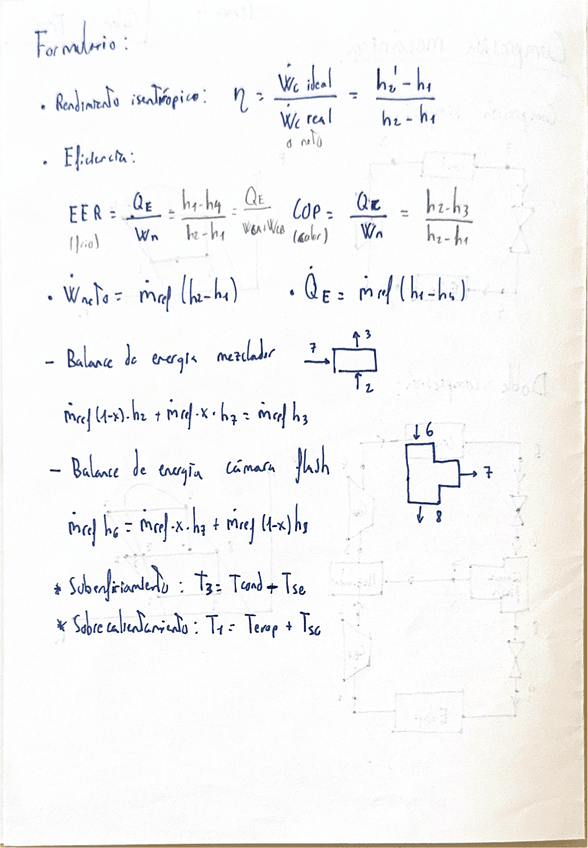 Formulario:
• Rendimiento isentrópico: η = Ẇc ideal / Ẇc real o neto = h2' - h1 / h2 - h1
• Eficiencia:
EER (frío) = QE / Wn = h1-h4 / h2-h1 = QE / WCA+WCB COP (calor) = Q / Wn = h2-h3 / h2-h1
• Ẇneto = ṁref (h2-h1) • Q̇E = ṁref (h1-h4)
- Balance de energía mezclador 7 3 2
ṁref (1-x)·h2 + ṁref·x·h7 = ṁref h3
- Balance de energía cámara flash 6 7 8
ṁref h6 = ṁref·x·h7 + ṁref (1-x)h8
* Subenfriamiento: T3 = Tcond + Tse
* Sobrecalentamiento: T1 = Tevap + Tsc